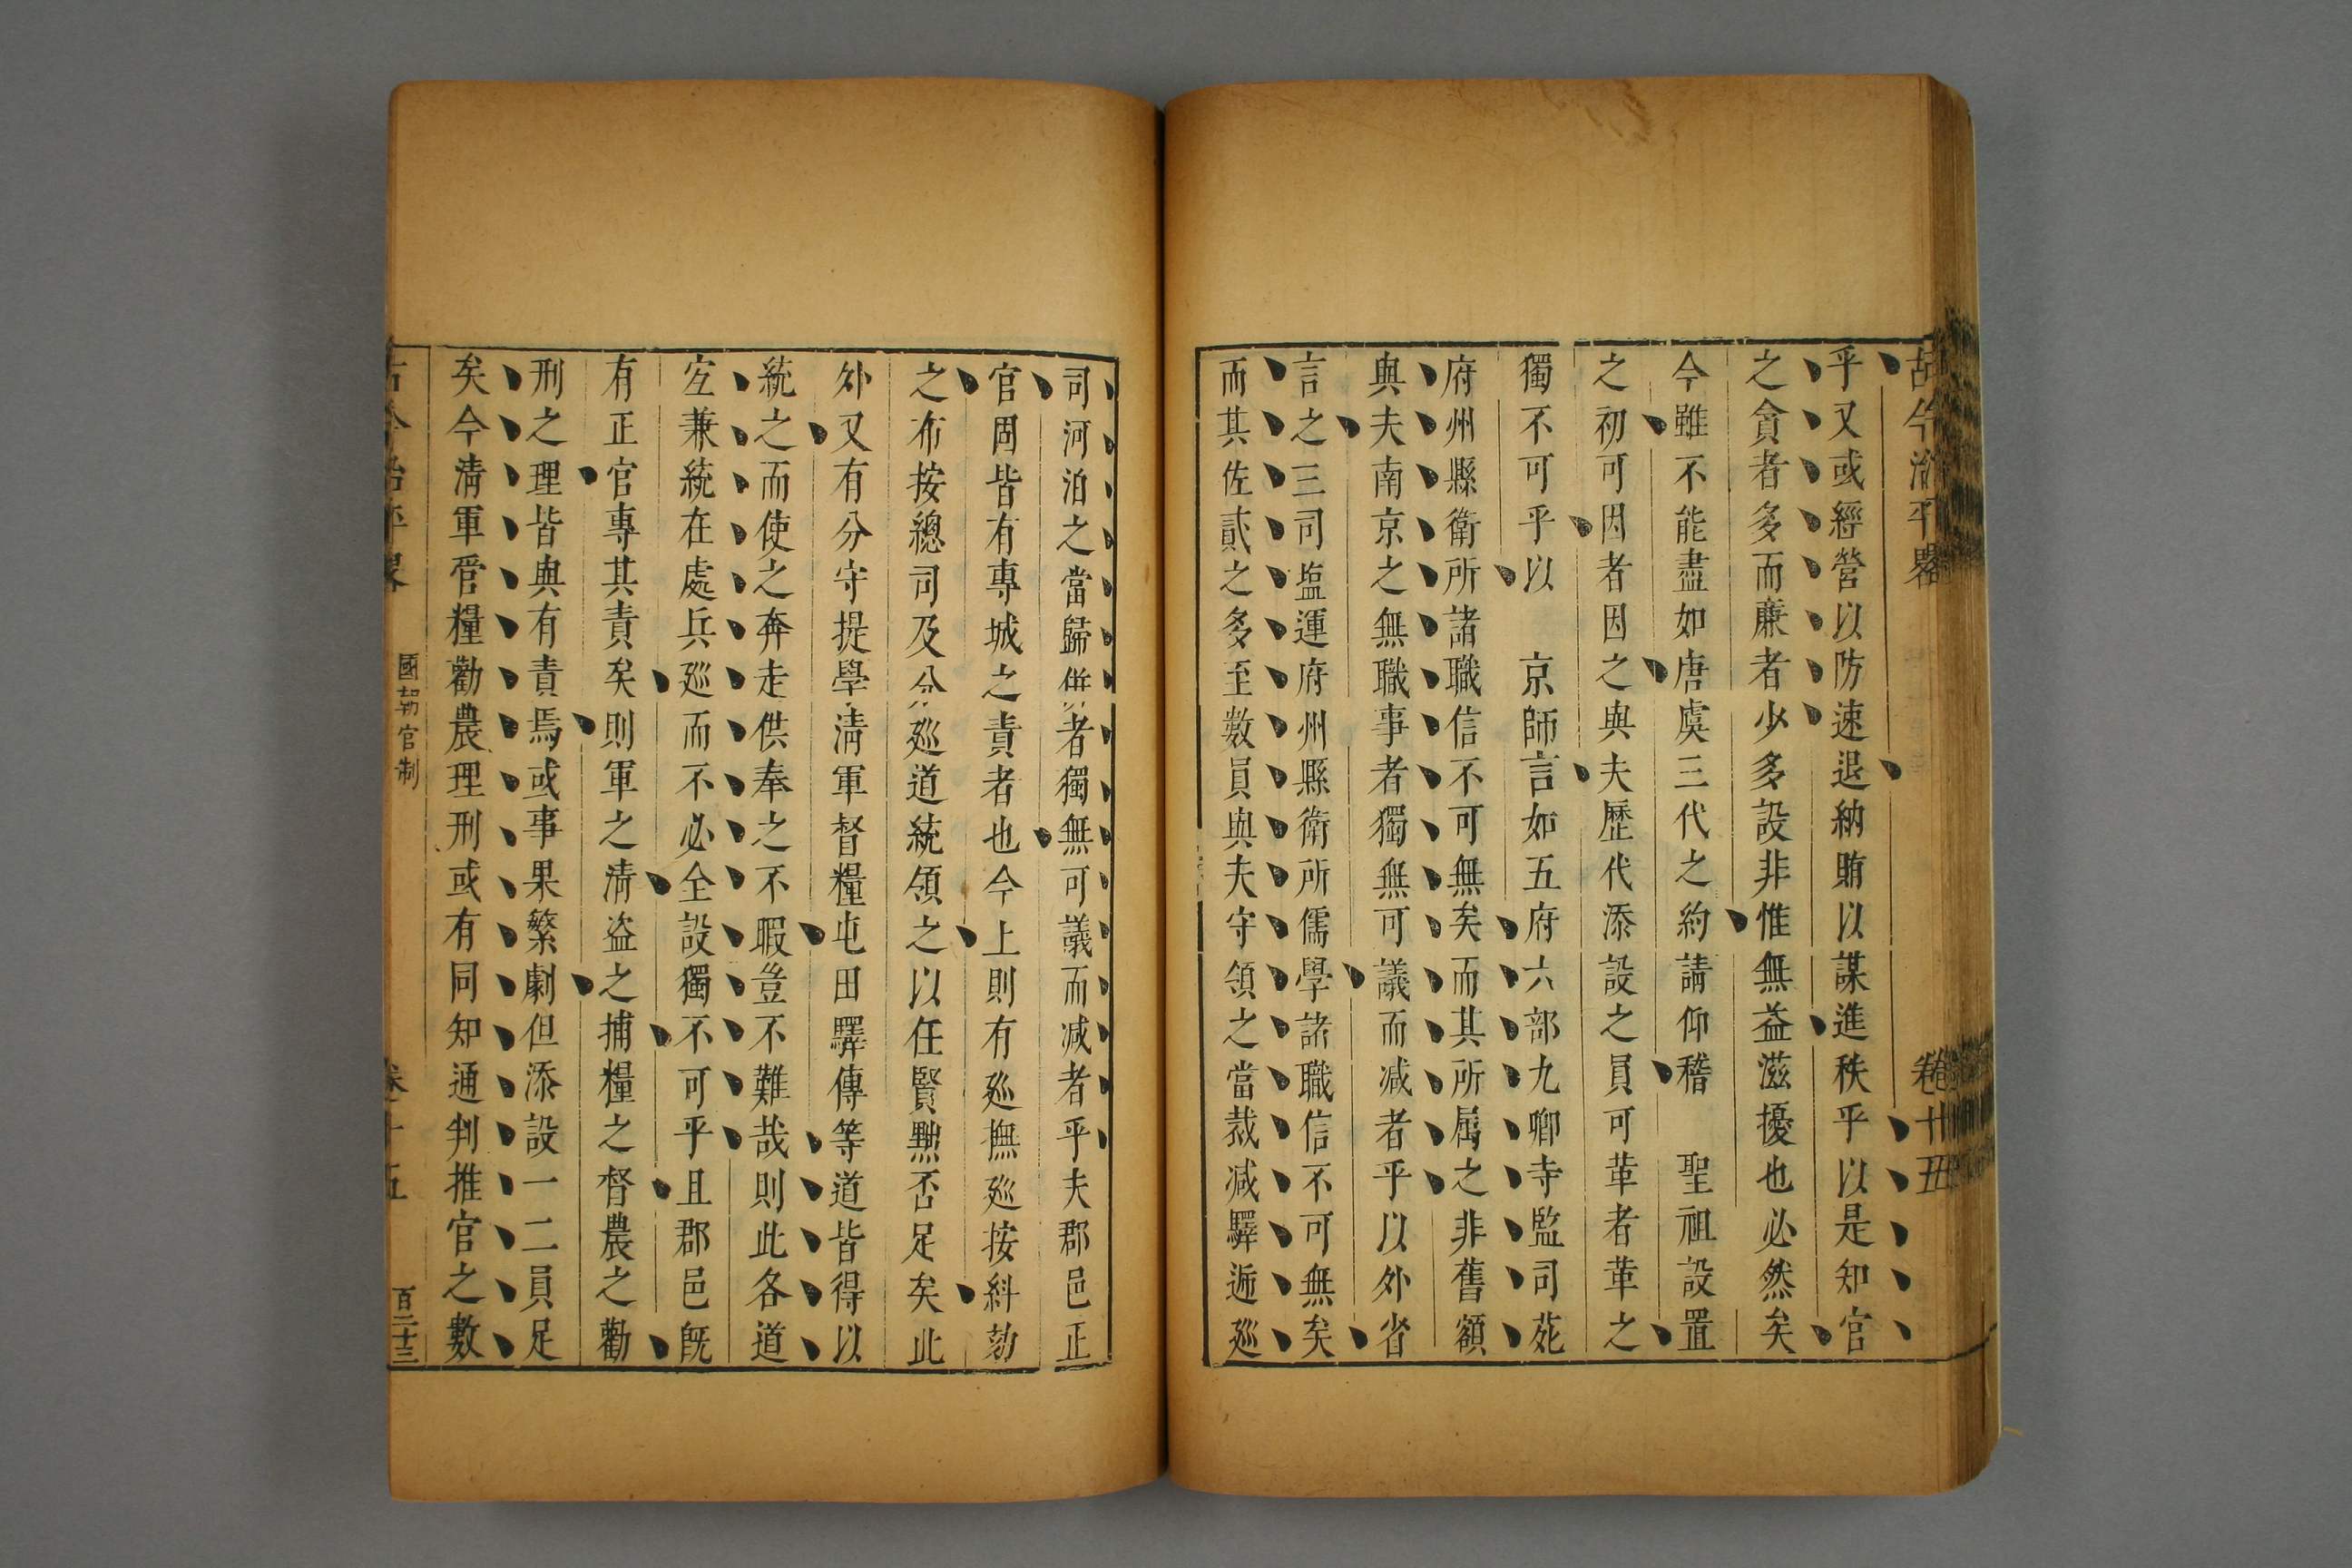 古今治平畧 卷十五
乎又或經營以防速退納賄以謀進秩乎以是知官
之貪者多而廉者少多設非惟無益滋擾也必然矣
今雖不能盡如唐虞三代之約請仰稽 聖祖設置
之初可因者因之與夫歷代添設之員可革者革之
獨不可乎以 京師言如五府六部九卿寺監司苑
府州縣衛所諸職信不可無矣而其所屬之非舊額
與夫南京之無職事者獨無可議而减者乎以外省
言之三司塩運府州縣衛所儒學諸職信不可無矣
而其佐貳之多至數員與夫守領之當裁减驛逓廵
司河泊之當歸併者獨無可議而减者乎夫郡邑正
官固皆有專城之責者也今上則有廵撫廵按糾劾
之布按總司及分廵道統領之以任賢黜否足矣此
外又有分守提學清軍督糧屯田驛傳等道皆得以
統之而使之奔走供奉之不暇豈不難哉則此各道
宜兼統在處兵廵而不必全設獨不可乎且郡邑既
有正官專其責矣則軍之清盗之捕糧之督農之勸
刑之理皆與有責焉或事果繁劇但添設一二員足
矣今清軍管糧勸農理刑或有同知通判推官之數
古今治平畧 國朝官制 卷十五 百二十三